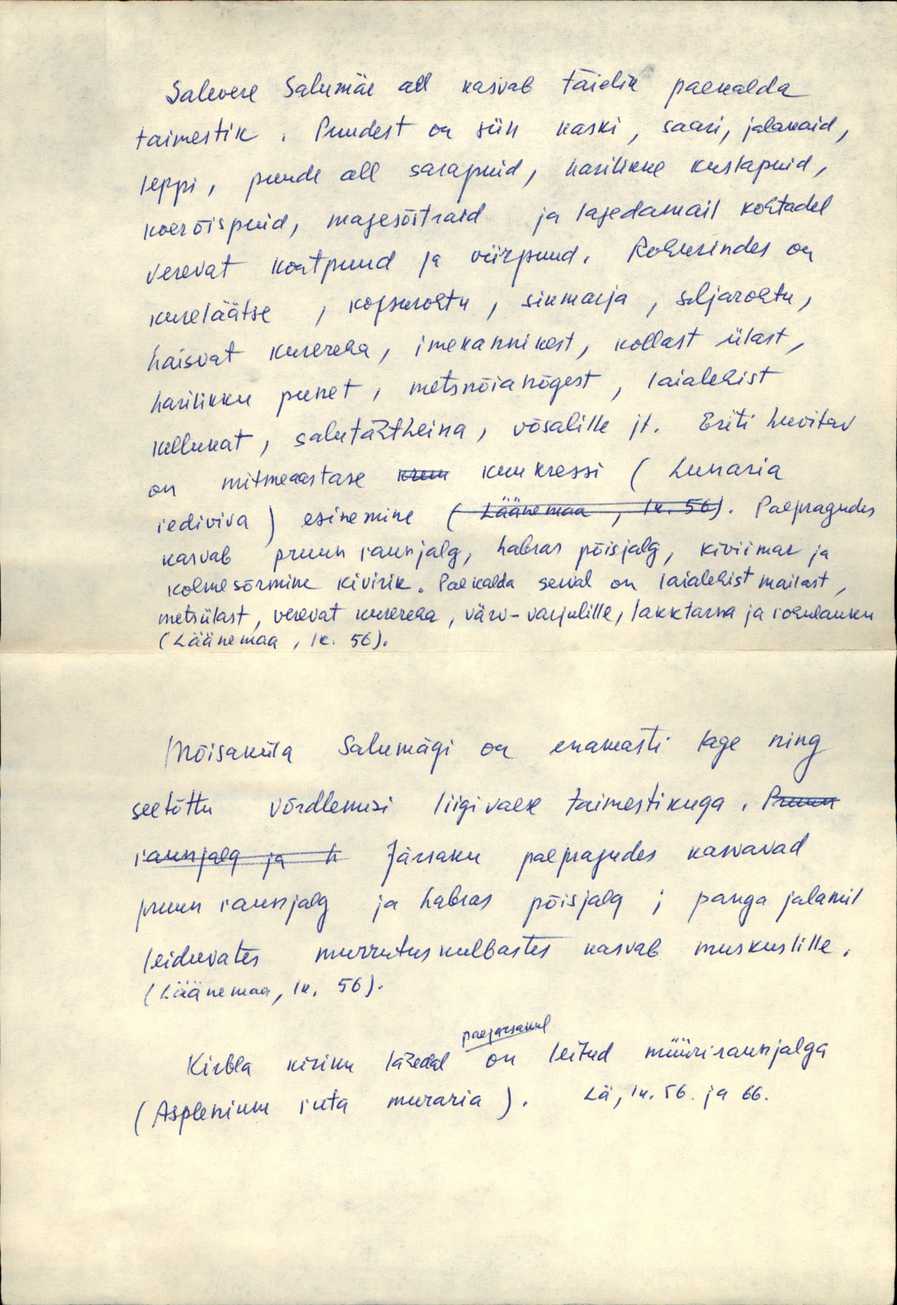 Salevere Salumäe all kasvab täielik paekalda
taimestik. Puudest on siin kaski, saari, jalakaid,
leppi, puude all sarapuid, harilikke kuslapuid,
koerõispuid, magesõstraid ja lagedamail kohtadel
verevat kontpuud ja viirpuud. Rohurindes on
kureläätse, kopsurohtu, sinmarja, seljarohtu,
haisvat kurereha, imekannikest, kollast ülast,
harilikku punet, metsnõianõgest, laialehist
kellukat, salutähtheina, võsalille jt. Eriti huvitav
on mitmeaastase kruu kuukressi (Lunaria
rediviva) esinemine (Läänemaa, lk. 56). Paepragudes
kasvab pruun raunjalg, habras põisjalg, kiviimar ja
kolmesõrmine kivirik. Paekalda serval on laialehist mailast,
metsülast, verevat kurereha, värv-varjulille, lakktarna ja
(Läänemaa, lk. 56).
Mõisaküla Salumägi on enamasti lage ning
seetõttu võrdlemisi liigivaese taimestikuga. Pruun
raunjalg ja h Järsaku paepragudes kasvavad
pruun raunjalg ja habras põisjalg; panga jalamil
leiduvates murrutuskulbastes kasvab muskuslille.
(Läänemaa, lk. 56).
paejärsakul
Kirbla kiriku lähedal on leitud müüriraunjalga
(Asplenium ruta muraria). Lä, lk. 56. ja 66.